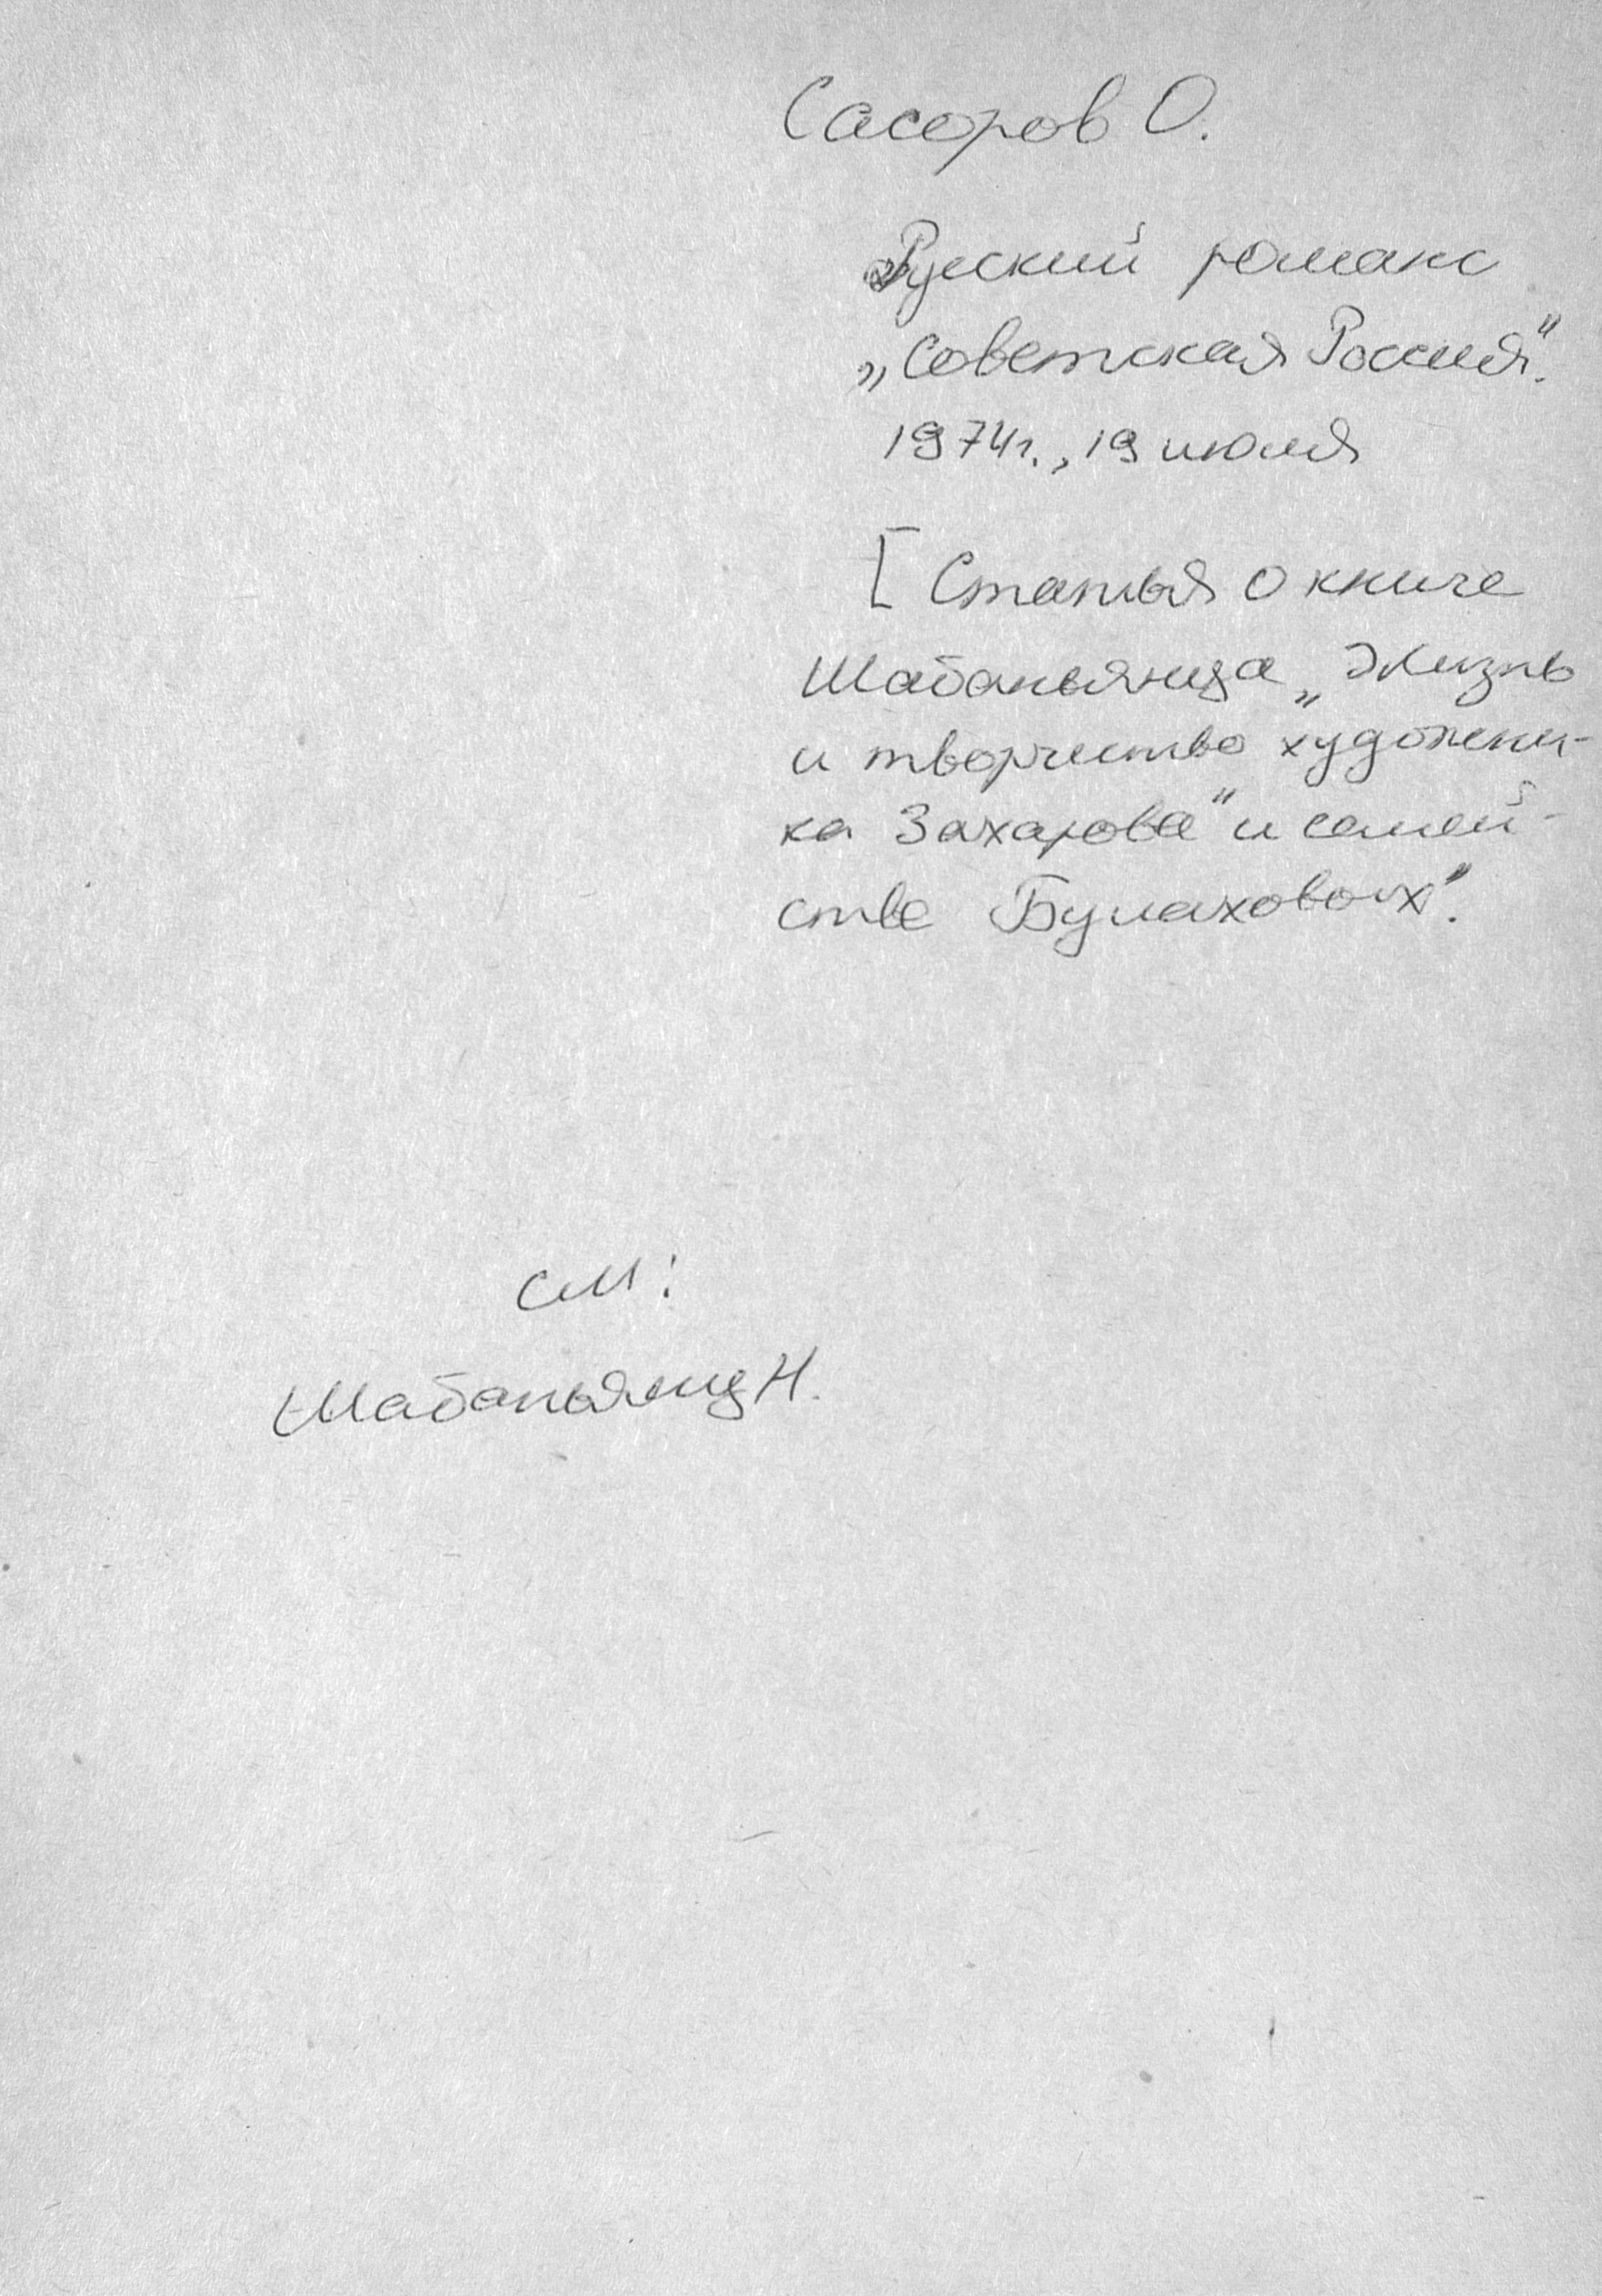 Сасоров О.
Русский романс
„Советская Россия".
1974г., 19 июля
[Статья о книге
Шабаньянца „Жизнь
и творчество художни-
ка Захарова" и семей-
стве Булаховых".
см:
Шабаньянц Н.